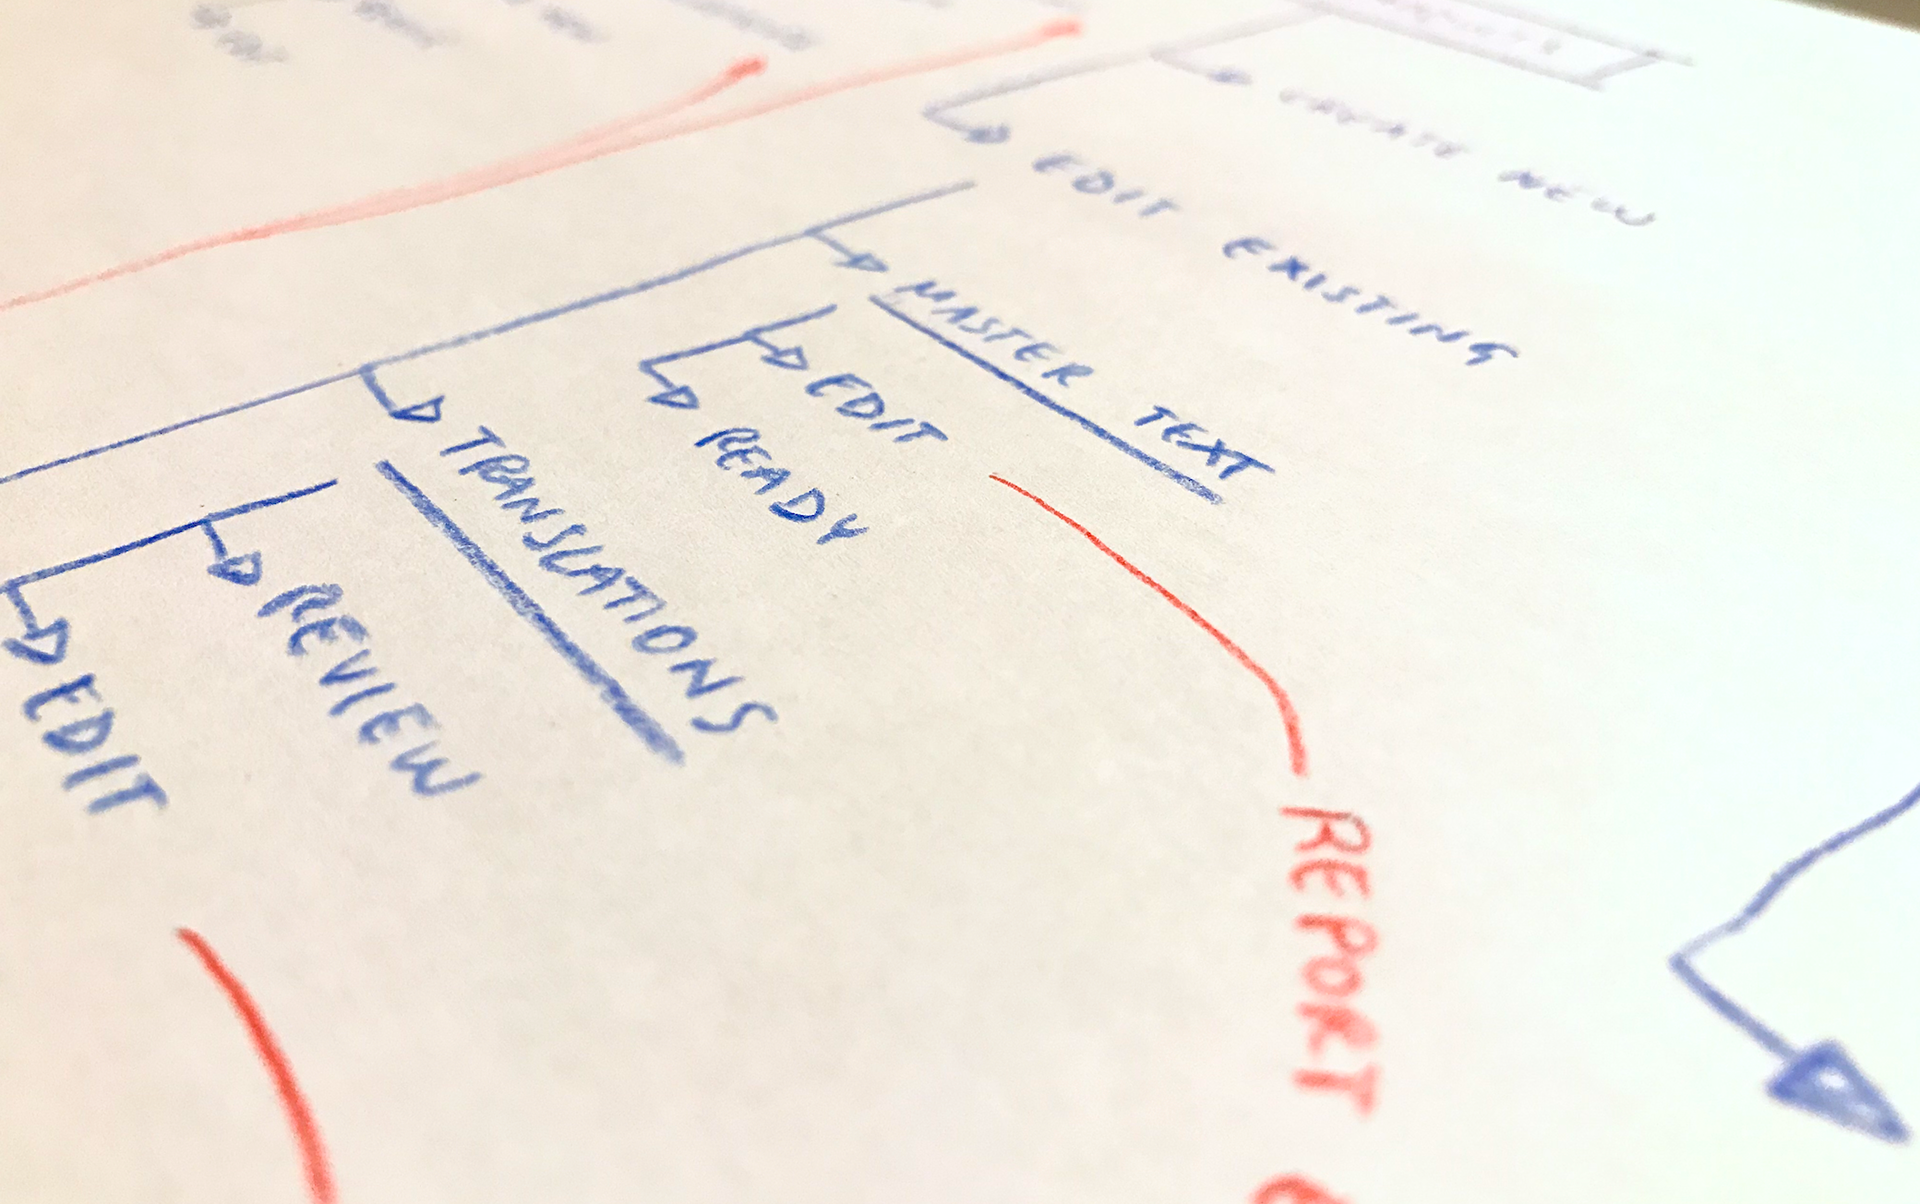 CREATE NEW
EDIT EXISTING
MASTER TEXT
EDIT
READY
TRANSLATIONS
REVIEW
EDIT
REPORT